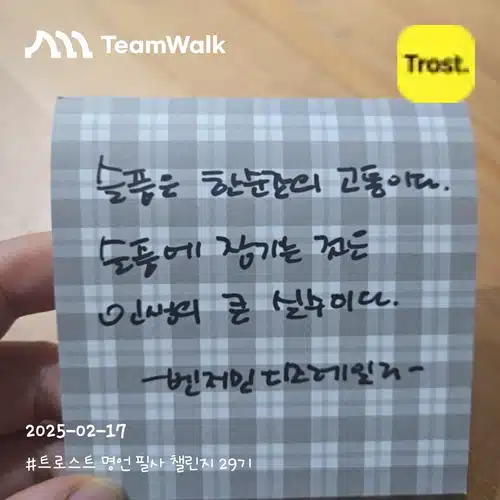 TeamWalk
Trost.
슬픔은 한순간의 고통이다.
슬픔에 잠기는 것은
인생의 큰 실수이다.
-벤저민 디즈레일리-
2025-02-17
#트로스트 명언 필사 챌린지 29기